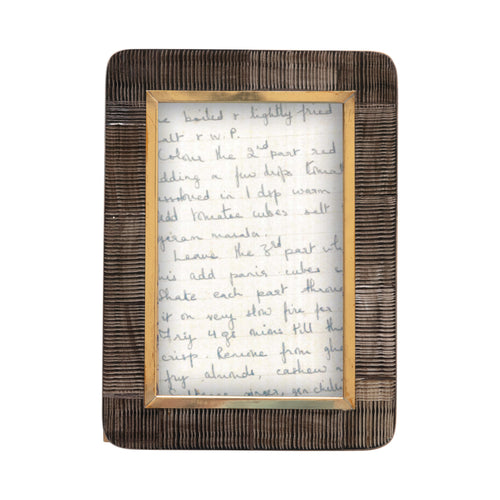 e boiled & lightly fried
alt & W.P.
Colour the 2nd part red
dding a few drps tomat
ssolved in 1 dsp warm
dd tomatoe cubes salt
garam masala.
Leave the 3rd part wh
his add panir cubes
Shake each part throu
it on very slow fire for
Fry 4 gs onions till th
crisp. Remove from ghe
fry almonds, cashew n
ginger, grn chill